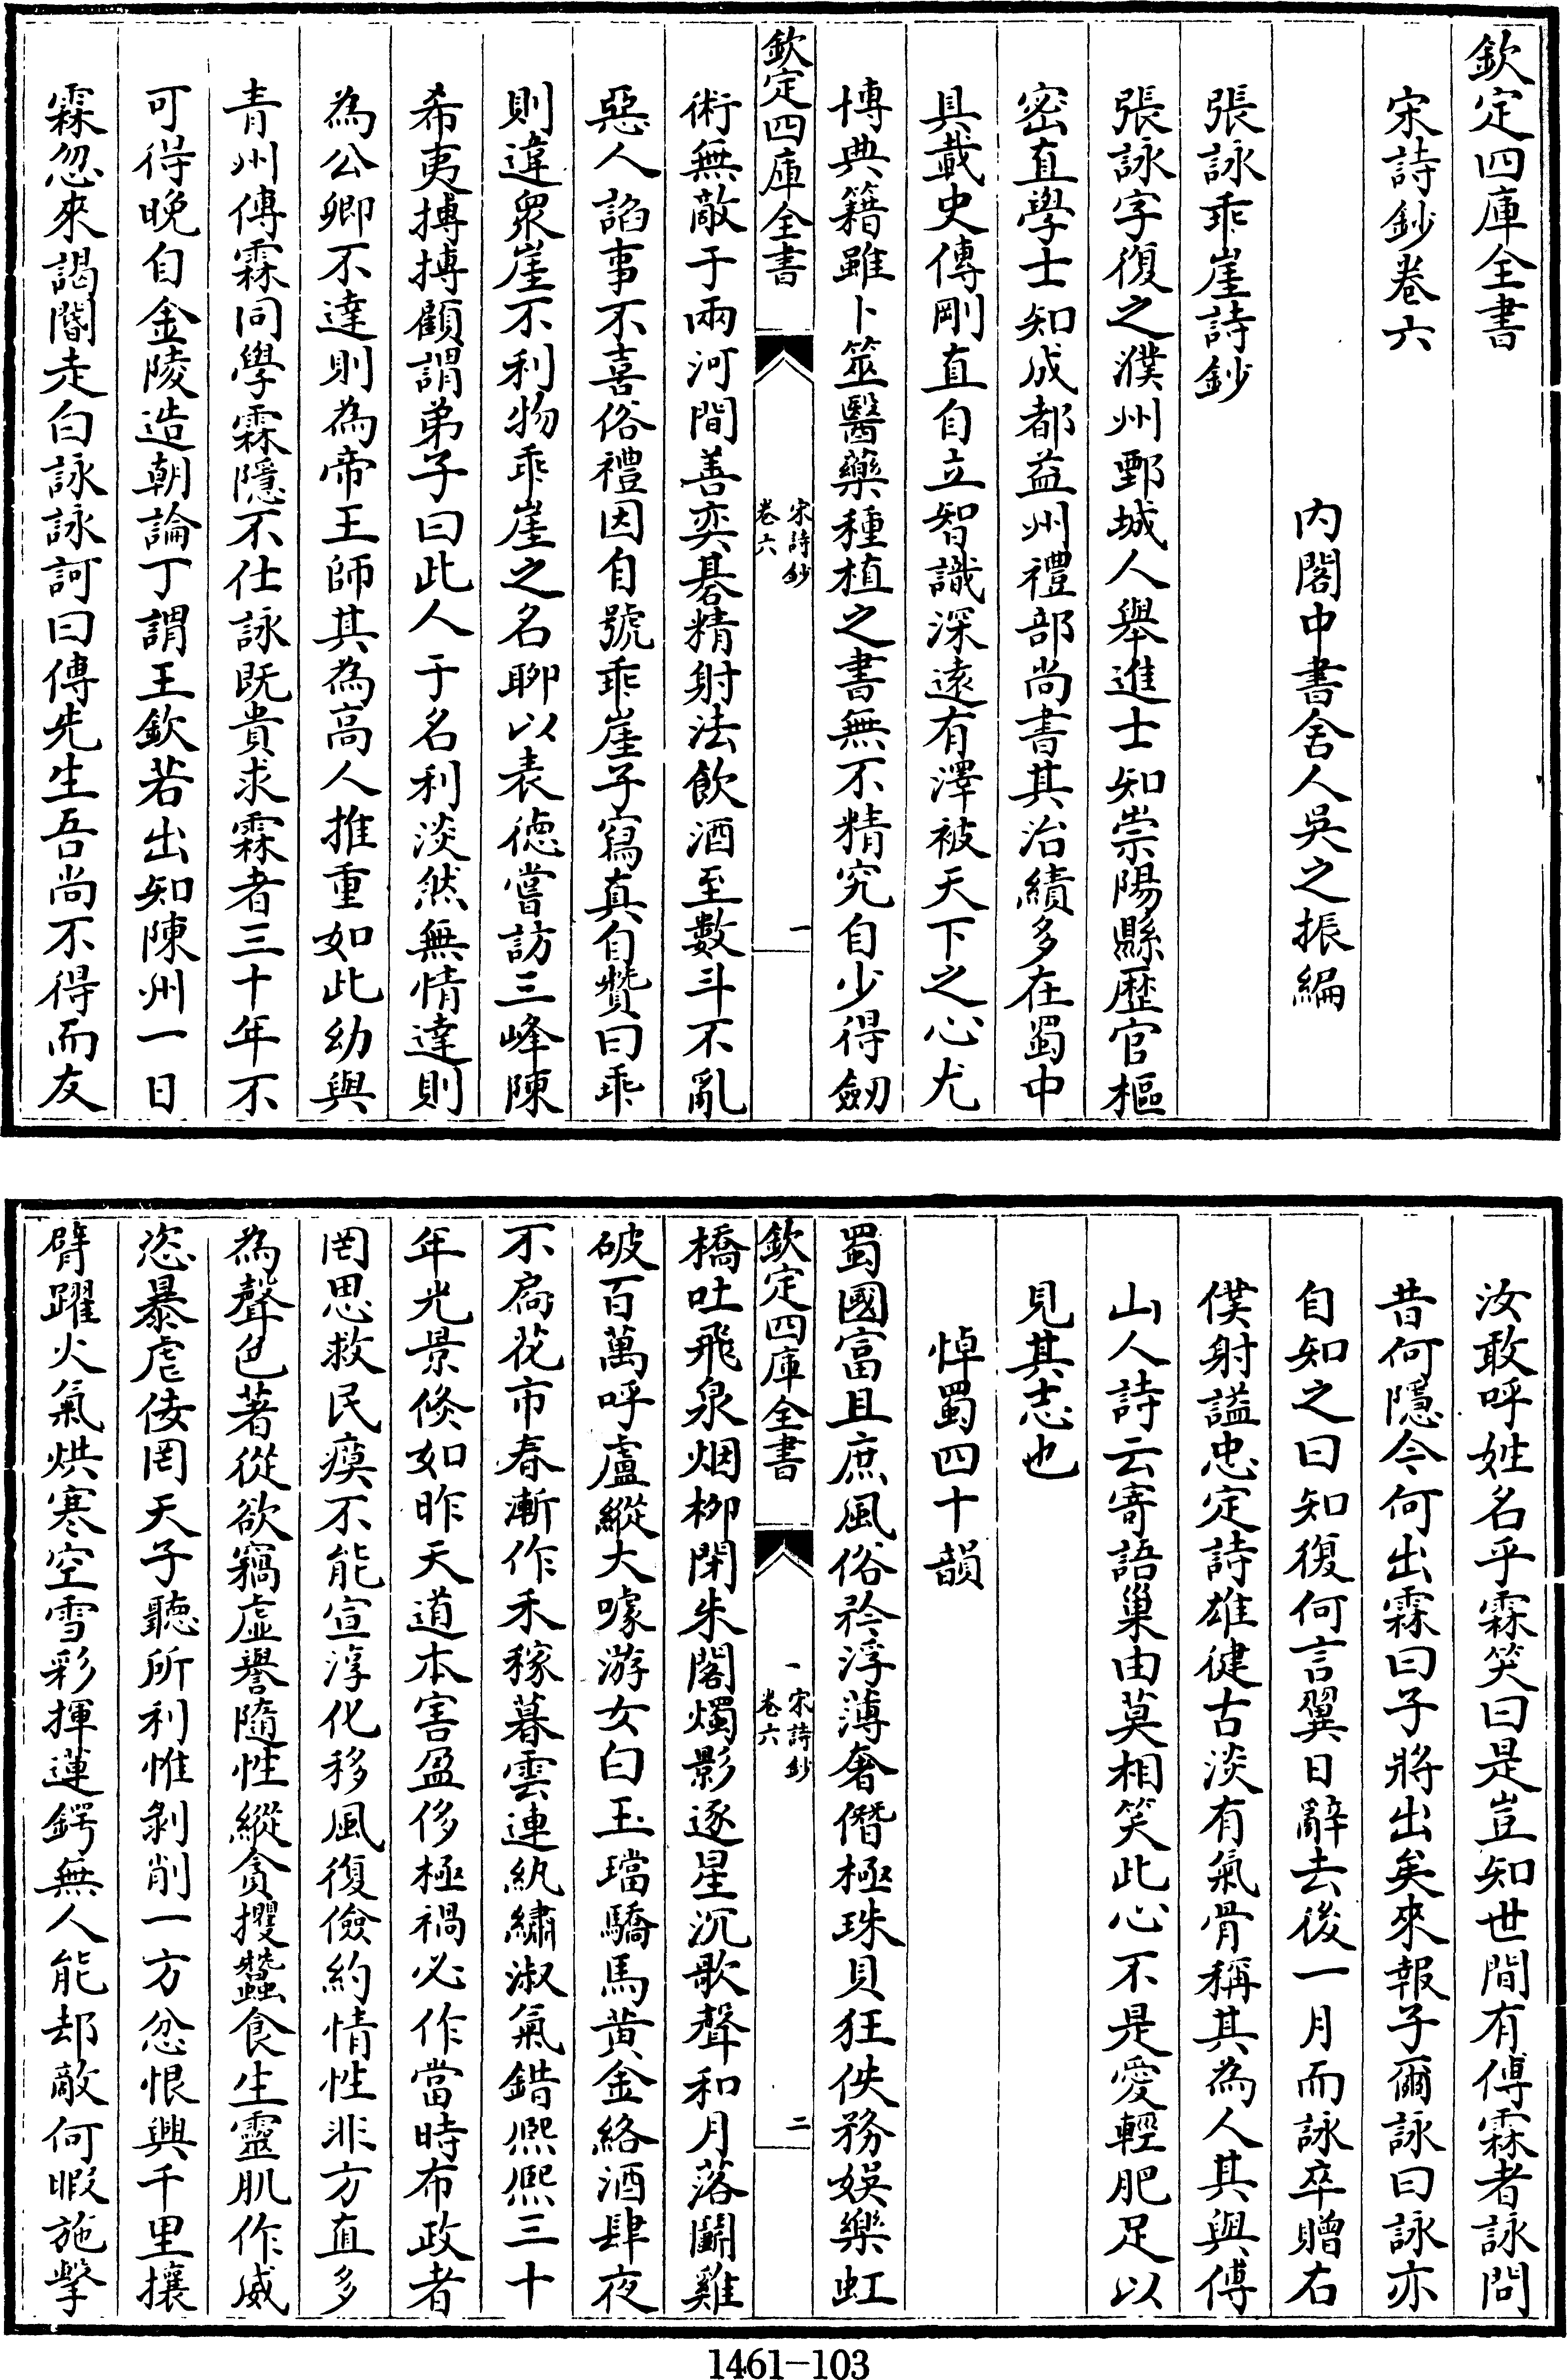 欽定四庫全書
宋詩鈔卷六
内閣中書舍人吳之振編
張詠乖崖詩鈔
張詠字復之濮州鄄城人舉進士知崇陽縣歴官樞
密直學士知成都益州禮部尚書其治績多在蜀中
具載史傳剛直自立智識深遠有澤被天下之心尤
博典籍雖卜筮醫藥種植之書無不精究自少得劒
欽定四庫全書
宋詩鈔
卷六
一
術無敵于兩河間善奕碁精射法飲酒至數斗不亂
惡人諂事不喜俗禮因自號乖崖子寫真自贊曰乖
則違衆崖不利物乖崖之名聊以表徳嘗訪三峰陳
希夷摶摶顧謂弟子曰此人于名利淡然無情達則
為公卿不達則為帝王師其為高人推重如此幼與
青州傅霖同學霖隱不仕詠既貴求霖者三十年不
可得晚自金陵造朝論丁謂王欽若出知陳州一日
霖忽來謁閽走白詠詠訶曰傅先生吾尚不得而友
汝敢呼姓名乎霖笑曰是豈知世間有傅霖者詠問
昔何隱今何出霖曰子將出矣來報子爾詠曰詠亦
自知之曰知復何言翼日辭去後一月而詠卒贈右
僕射謚忠定詩雄健古淡有氣骨稱其為人其與傅
山人詩云寄語巢由莫相笑此心不是愛輕肥足以
見其志也
悼蜀四十韻
蜀國富且庶風俗矜浮薄奢僭極珠貝狂佚務娯樂虹
欽定四庫全書
宋詩鈔
卷六
二
橋吐飛泉烟柳閉朱閣燭影逐星沉歌聲和月落鬭雞
破百萬呼盧縱大噱游女白玉璫驕馬黄金絡酒肆夜
不扄花市春漸作禾稼暮雲連紈繡淑氣錯熙熙三十
年光景倐如昨天道本害盈侈極禍必作當時布政者
罔思救民瘼不能宣淳化移風復儉約情性非方直多
為聲色著從欲竊虚譽隨性縱貪攫蠶食生靈肌作威
恣暴虐佞罔天子聽所利惟剥削一方忿恨興千里攘
臂躍火氣烘寒空雪彩揮蓮鍔無人能却敵何暇施擊
1461-103